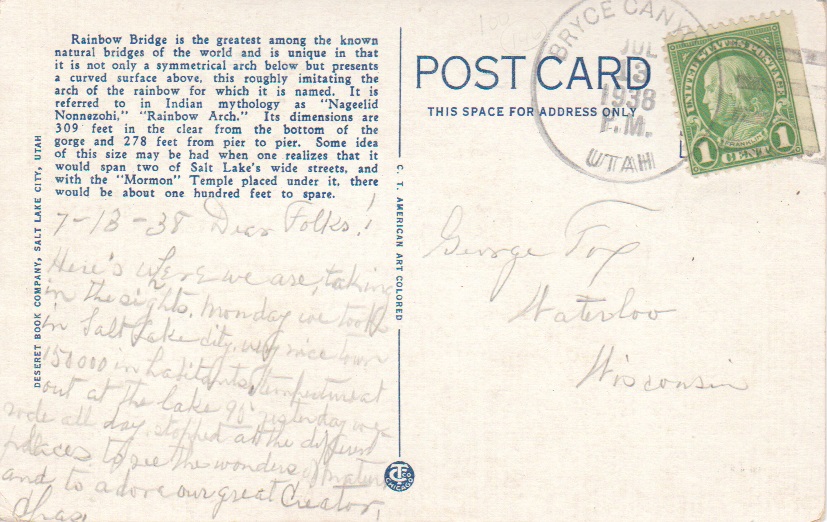 Rainbow Bridge is the greatest among the known
natural bridges of the world and is unique in that
it is not only a symmetrical arch below but presents
a curved surface above, this roughly imitating the
arch of the rainbow for which it is named. It is
referred to in Indian mythology as "Nageelid
Nonnezohi," "Rainbow Arch." Its dimensions are
309 feet in the clear from the bottom of the
gorge and 278 feet from pier to pier. Some idea
of this size may be had when one realizes that it
would span two of Salt Lake's wide streets, and
with the "Mormon" Temple placed under it, there
would be about one hundred feet to spare.
7-13-38 Dear Folks!
Here's where we are, taking
in the sights. Monday we took
in Salt Lake city. very nice town
150000 inhabitants
out at the lake 90° yesterday we
rode all day. stopped at the different
places to see the wonders of nature
and to adore our great Creator,
Chas.
DESERET BOOK COMPANY, SALT LAKE CITY, UTAH
C. T. AMERICAN ART COLORED
CHICAGO
POST CARD
THIS SPACE FOR ADDRESS ONLY
BRYCE CANY
JUL
13
1938
P.M.
UTAH
UNITED STATES POSTAGE
FRANKLIN
1 CENT 1
George Fox
Waterloo
Wisconsin